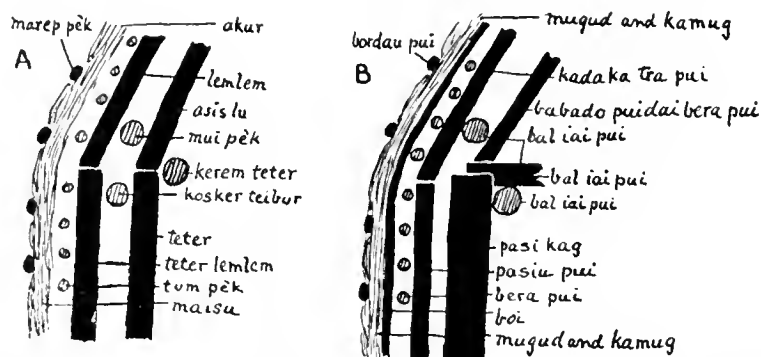 A
marep pèk
akur
lemlem
asis lu
mui pèk
kerem teter
kosker teibur
teter
teter lemlem
tum pèk
maisu
B
mugud and kamug
bordau pui
kadaka tra pui
babado puidai bera pui
bal iai pui
bal iai pui
bal iai pui
pasi kag
pasiu pui
bera pui
boi
mugud and kamug